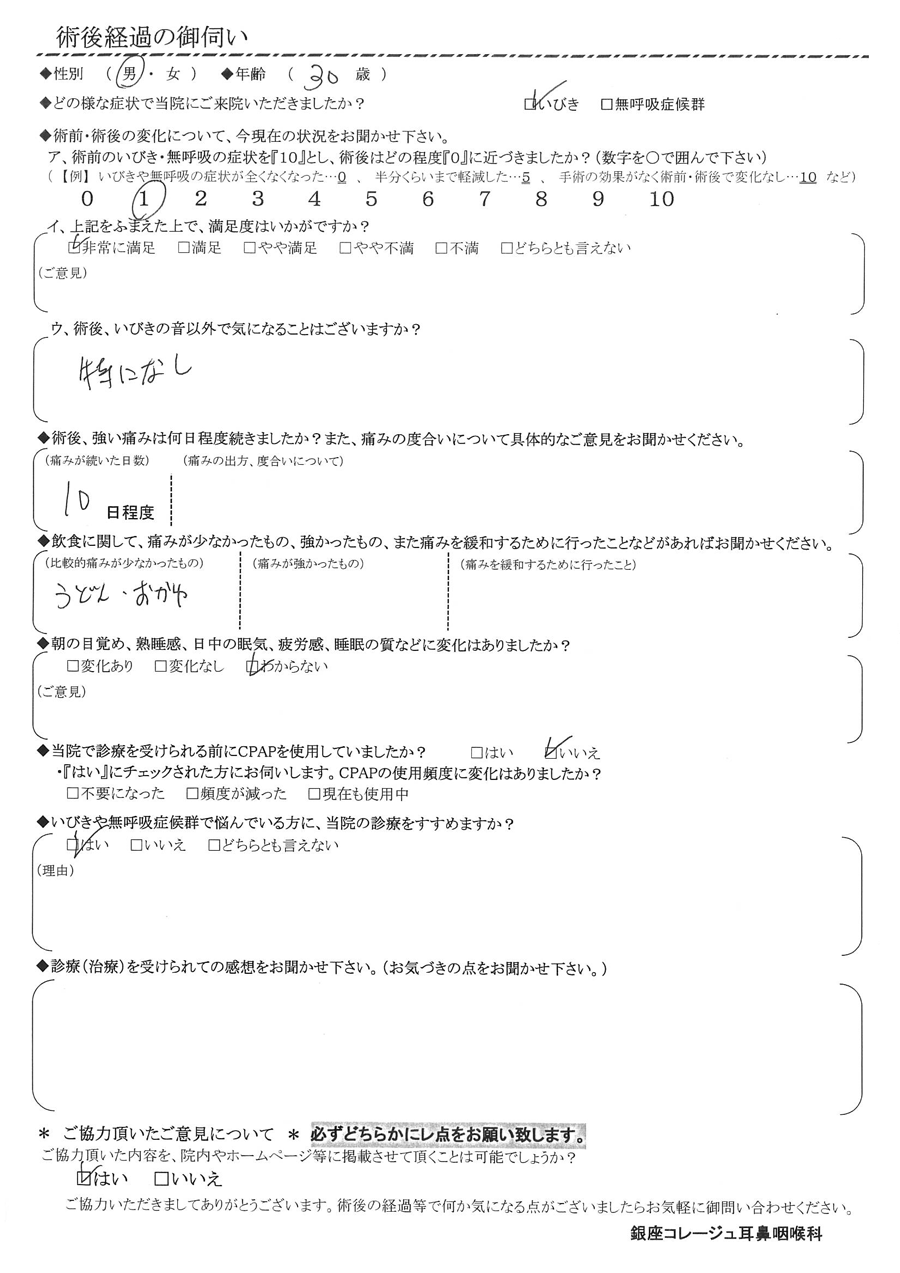 術後経過の御伺い
◆性別 （ 男 ・ 女 ） ◆年齢 （ 30 歳 ）
◆どの様な症状で当院にご来院いただきましたか？ ☑いびき □無呼吸症候群
◆術前・術後の変化について、今現在の状況をお聞かせ下さい。
ア、術前のいびき・無呼吸の症状を『10』とし、術後はどの程度『0』に近づきましたか？（数字を〇で囲んで下さい）
（ 【例】 いびきや無呼吸の症状が全くなくなった…0 、 半分くらいまで軽減した…5 、 手術の効果がなく術前・術後で変化なし…10 など）
0 1 2 3 4 5 6 7 8 9 10
イ、上記をふまえた上で、満足度はいかがですか？
☑非常に満足 □満足 □やや満足 □やや不満 □不満 □どちらとも言えない
（ご意見）
ウ、術後、いびきの音以外で気になることはございますか？
特になし
◆術後、強い痛みは何日程度続きましたか？また、痛みの度合いについて具体的なご意見をお聞かせください。
（痛みが続いた日数） （痛みの出方、度合いについて）
10 日程度
◆飲食に関して、痛みが少なかったもの、強かったもの、また痛みを緩和するために行ったことなどがあればお聞かせください。
（比較的痛みが少なかったもの） （痛みが強かったもの） （痛みを緩和するために行ったこと）
うどん・おかゆ
◆朝の目覚め、熟睡感、日中の眠気、疲労感、睡眠の質などに変化はありましたか？
□変化あり □変化なし ☑わからない
（ご意見）
◆当院で診療を受けられる前にCPAPを使用していましたか？ □はい ☑いいえ
・『はい』にチェックされた方にお伺いします。CPAPの使用頻度に変化はありましたか？
□不要になった □頻度が減った □現在も使用中
◆いびきや無呼吸症候群で悩んでいる方に、当院の診療をすすめますか？
☑はい □いいえ □どちらとも言えない
（理由）
◆診療（治療）を受けられての感想をお聞かせ下さい。（お気づきの点をお聞かせ下さい。）
＊ ご協力頂いたご意見について ＊ 必ずどちらかにレ点をお願い致します。
ご協力頂いた内容を、院内やホームページ等に掲載させて頂くことは可能でしょうか？
☑はい □いいえ
ご協力いただきましてありがとうございます。術後の経過等で何か気になる点がございましたらお気軽に御問い合わせください。
銀座コレージュ耳鼻咽喉科